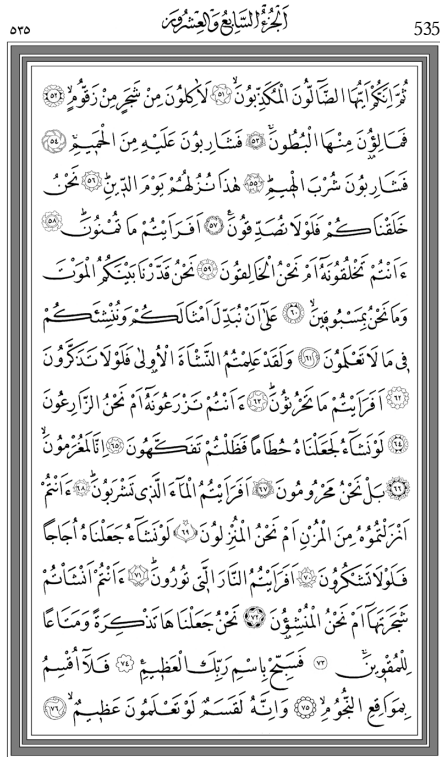 ٥٣٥ اَلْجُزْءُ السَّابِعُ وَالْعِشْرُونَ 535
ثُمَّ اِنَّكُمْ اَيُّهَا الضَّٓالُّونَ الْمُكَذِّبُونَۙ ﴿٥١﴾ لَاٰكِلُونَ مِنْ شَجَرٍ مِنْ زَقُّومٍۙ ﴿٥٢﴾
فَمَالِؤُ۫نَ مِنْهَا الْبُطُونَۚ ﴿٥٣﴾ فَشَارِبُونَ عَلَيْهِ مِنَ الْحَم۪يمِۚ ﴿٥٤﴾
فَشَارِبُونَ شُرْبَ الْه۪يمِۜ ﴿٥٥﴾ هٰذَا نُزُلُهُمْ يَوْمَ الدّ۪ينِۜ ﴿٥٦﴾ نَحْنُ
خَلَقْنَاكُمْ فَلَوْلَا تُصَدِّقُونَ ﴿٥٧﴾ اَفَرَاَيْتُمْ مَا تُمْنُونَۜ ﴿٥٨﴾
ءَاَنْتُمْ تَخْلُقُونَهُٓ اَمْ نَحْنُ الْخَالِقُونَ ﴿٥٩﴾ نَحْنُ قَدَّرْنَا بَيْنَكُمُ الْمَوْتَ
وَمَا نَحْنُ بِمَسْبُوق۪ينَۙ ﴿٦٠﴾ عَلٰٓى اَنْ نُبَدِّلَ اَمْثَالَكُمْ وَنُنْشِئَكُمْ
ف۪ي مَا لَا تَعْلَمُونَ ﴿٦١﴾ وَلَقَدْ عَلِمْتُمُ النَّشْاَةَ الْاُو۫لٰى فَلَوْلَا تَذَكَّرُونَ
﴿٦٢﴾ اَفَرَاَيْتُمْ مَا تَحْرُثُونَۜ ﴿٦٣﴾ ءَاَنْتُمْ تَزْرَعُونَهُٓ اَمْ نَحْنُ الزَّارِعُونَ
﴿٦٤﴾ لَوْ نَشَٓاءُ لَجَعَلْنَاهُ حُطَامًا فَظَلْتُمْ تَفَكَّهُونَ ﴿٦٥﴾ اِنَّا لَمُغْرَمُونَۙ
﴿٦٦﴾ بَلْ نَحْنُ مَحْرُومُونَ ﴿٦٧﴾ اَفَرَاَيْتُمُ الْمَٓاءَ الَّذ۪ي تَشْرَبُونَۜ ﴿٦٨﴾ ءَاَنْتُمْ
اَنْزَلْتُمُوهُ مِنَ الْمُزْنِ اَمْ نَحْنُ الْمُنْزِلُونَ ﴿٦٩﴾ لَوْ نَشَٓاءُ جَعَلْنَاهُ اُجَاجًا
فَلَوْلَا تَشْكُرُونَ ﴿٧٠﴾ اَفَرَاَيْتُمُ النَّارَ الَّت۪ي تُورُونَۜ ﴿٧١﴾ ءَاَنْتُمْ اَنْشَأْتُمْ
شَجَرَتَهَٓا اَمْ نَحْنُ الْمُنْشِؤُ۫نَ ﴿٧٢﴾ نَحْنُ جَعَلْنَاهَا تَذْكِرَةً وَمَتَاعًا
لِلْمُقْو۪ينَۚ ﴿٧٣﴾ فَسَبِّحْ بِاسْمِ رَبِّكَ الْعَظ۪يمِ ﴿٧٤﴾ فَلَٓا اُقْسِمُ
بِمَوَاقِعِ النُّجُومِۙ ﴿٧٥﴾ وَاِنَّهُ لَقَسَمٌ لَوْ تَعْلَمُونَ عَظ۪يمٌۙ ﴿٧٦﴾